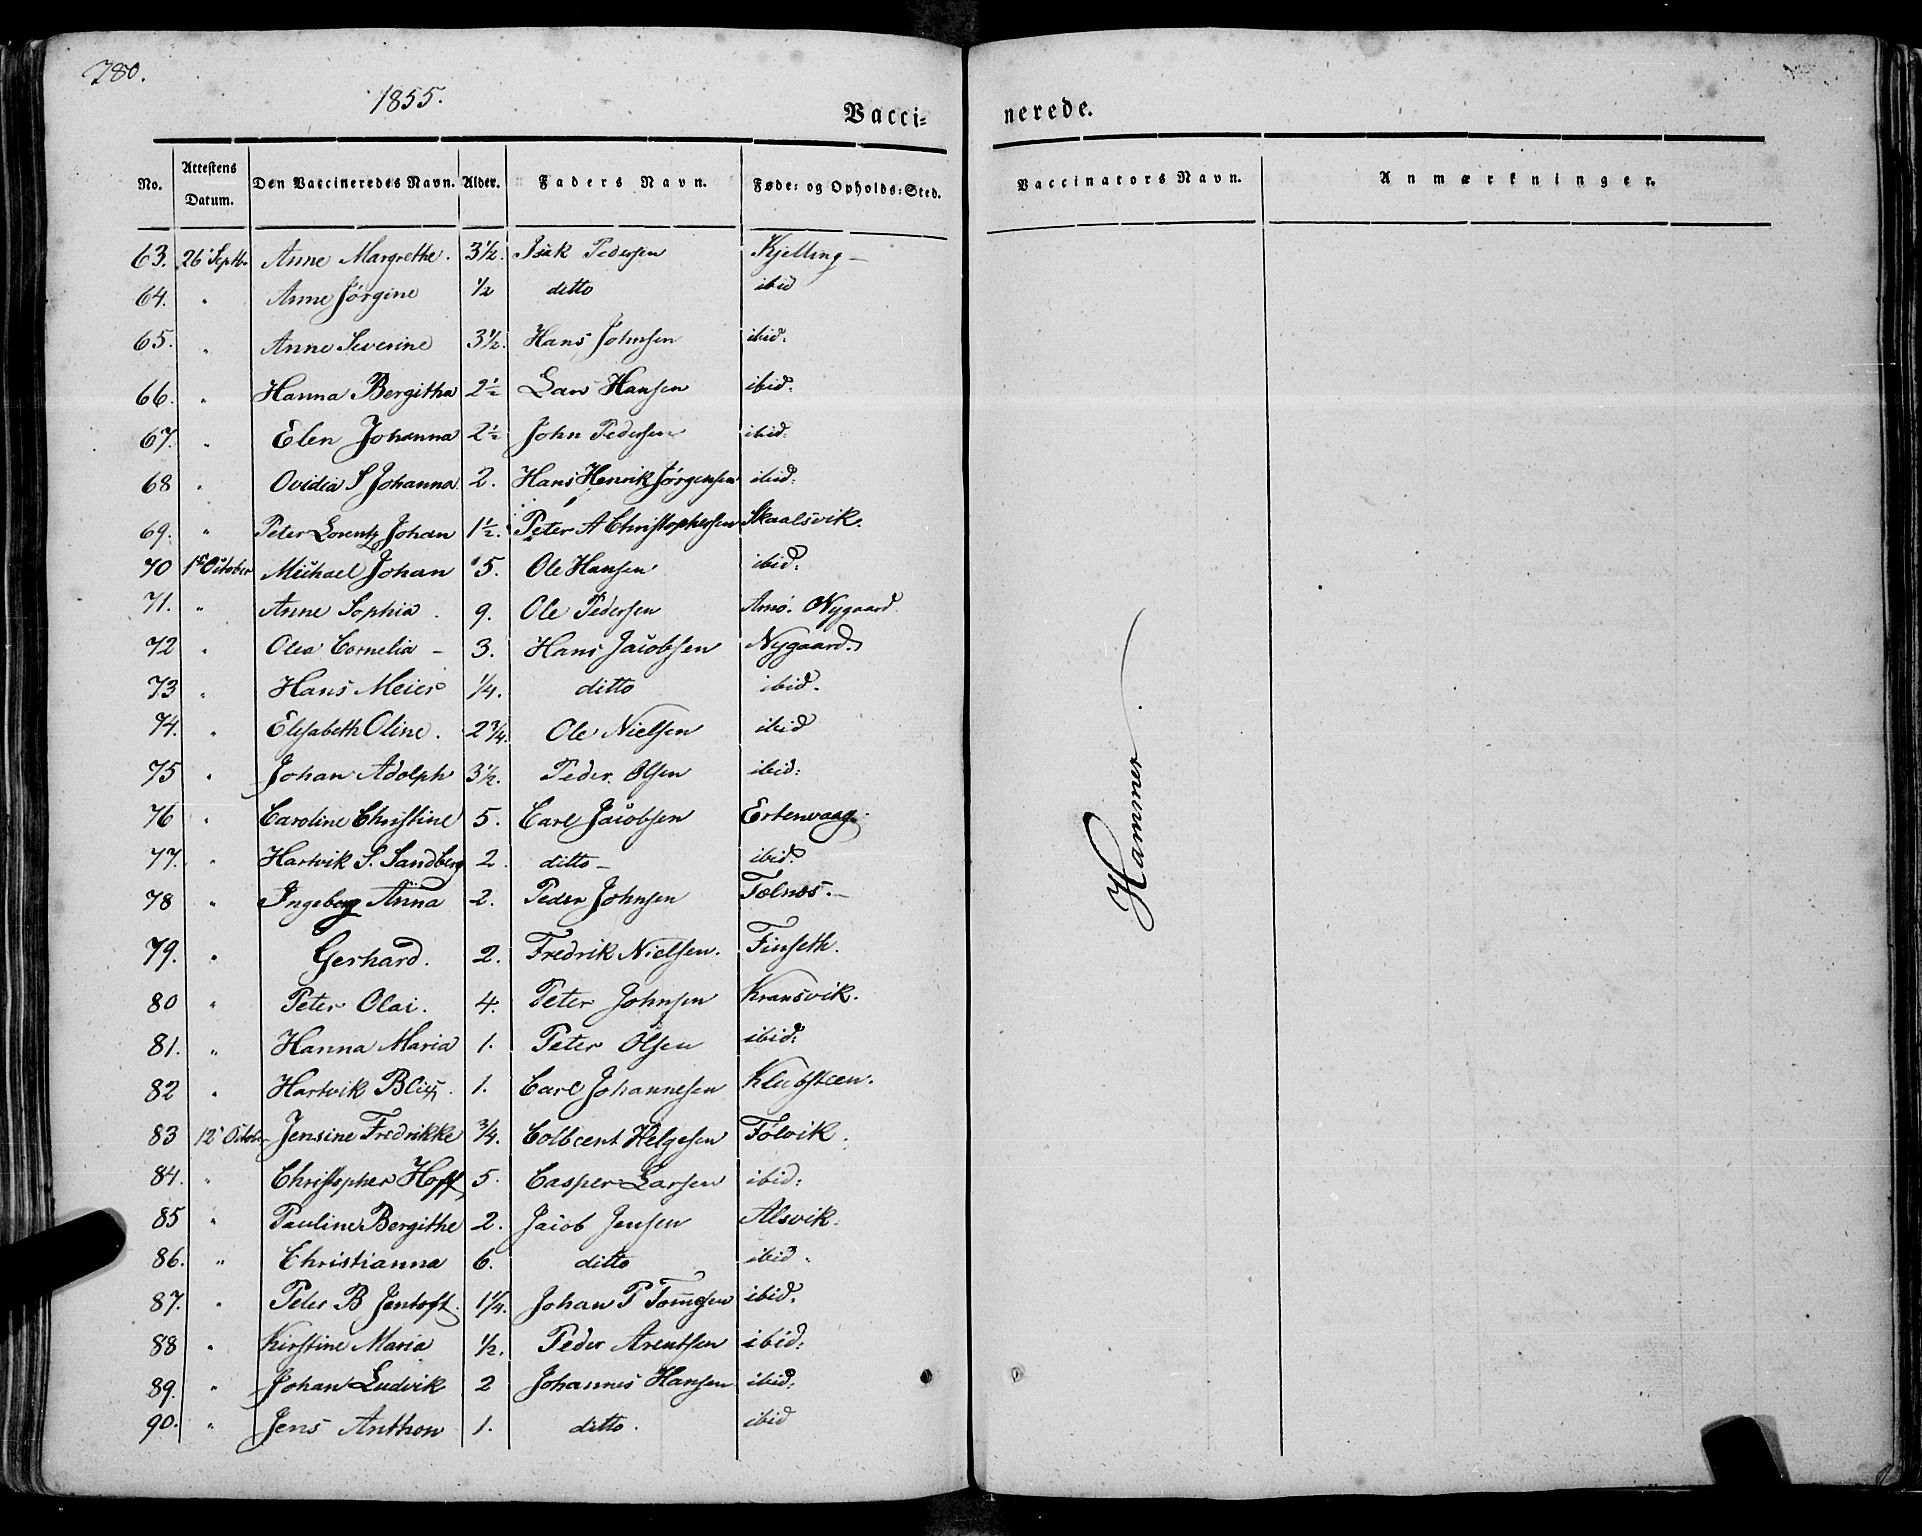 780.
1855.
Vacci=
nerede.
No. Attestens Datum. Den Vaccineredes Navn. Alder. Faders Navn. Føde= og Opholds=Sted. Vaccinators Navn. Anmærkninger.
63. 26 Septbr Anne Margrethe. 3½. Isak Pedersen Kjelling –
64. " Anne Jørgine ½ ditto ibid
65. " Anne Severine 3½. Hans Johnsen ibid.
66. " Hanna Bergitha 2½ Lars Hansen ibid.
67. " Elen Johanna 2½ John Pedersen ibid.
68 " Ovidia S Johanna 2. Hans Henrik Jørgensen ibid:
69. " Peter Lorentz Johan 1½. Peter A Christophersen Skaalsvik.
70 1st October Michael Johan 5. Ole Hansen ibid.
71. " Anne Sophia. 9. Ole Pedersen Arnø. Nygaard.
72 " Olea Cornelia – 3. Hans Jacobsen Nygaard.
73 " Hans Meier ¼. ditto ibid.
74. " Elisabeth Oline. 2¾. Ole Nielsen ibid
75 " Johan Adolph 3½. Peder Olsen ibid:
76 " Caroline Christine 5. Carl Jacobsen Ertenvaag.
77. " Hartvik S. Sandberg 2. ditto – ibid.
78 " Ingeborg Anna 2. Peder Johnsen Tælnes. –
79. " Gerhard. 2. Fredrik Nielsen. Finseth.
80 " Peter Olai. 4. Peter Johnsen Kransvik.
81. " Hanna Maria 1. Peter Olsen ibid:
82 " Hartvik Blix. 1. Carl Johannesen Klubsteen.
83 12 October Jensine Fredrikke ¾. Colbeent Helgesen Følvik.
84. " Christopher Hoff 5. Casper Larsen ibid:
85 " Pauline Bergithe 2. Jacob Jensen Alsvik.
86. " Christianna 6. ditto ibid.
87. " Peter B Jentoft. 1¼. Johan P ibid.
88 " Kirstine Maria ½. Peder Arentsen ibid:
89. " Johan Ludvik 2 Johannes Hansen ibid:
90. " Jens Anthon 1. ditto. ibid
Hammer.